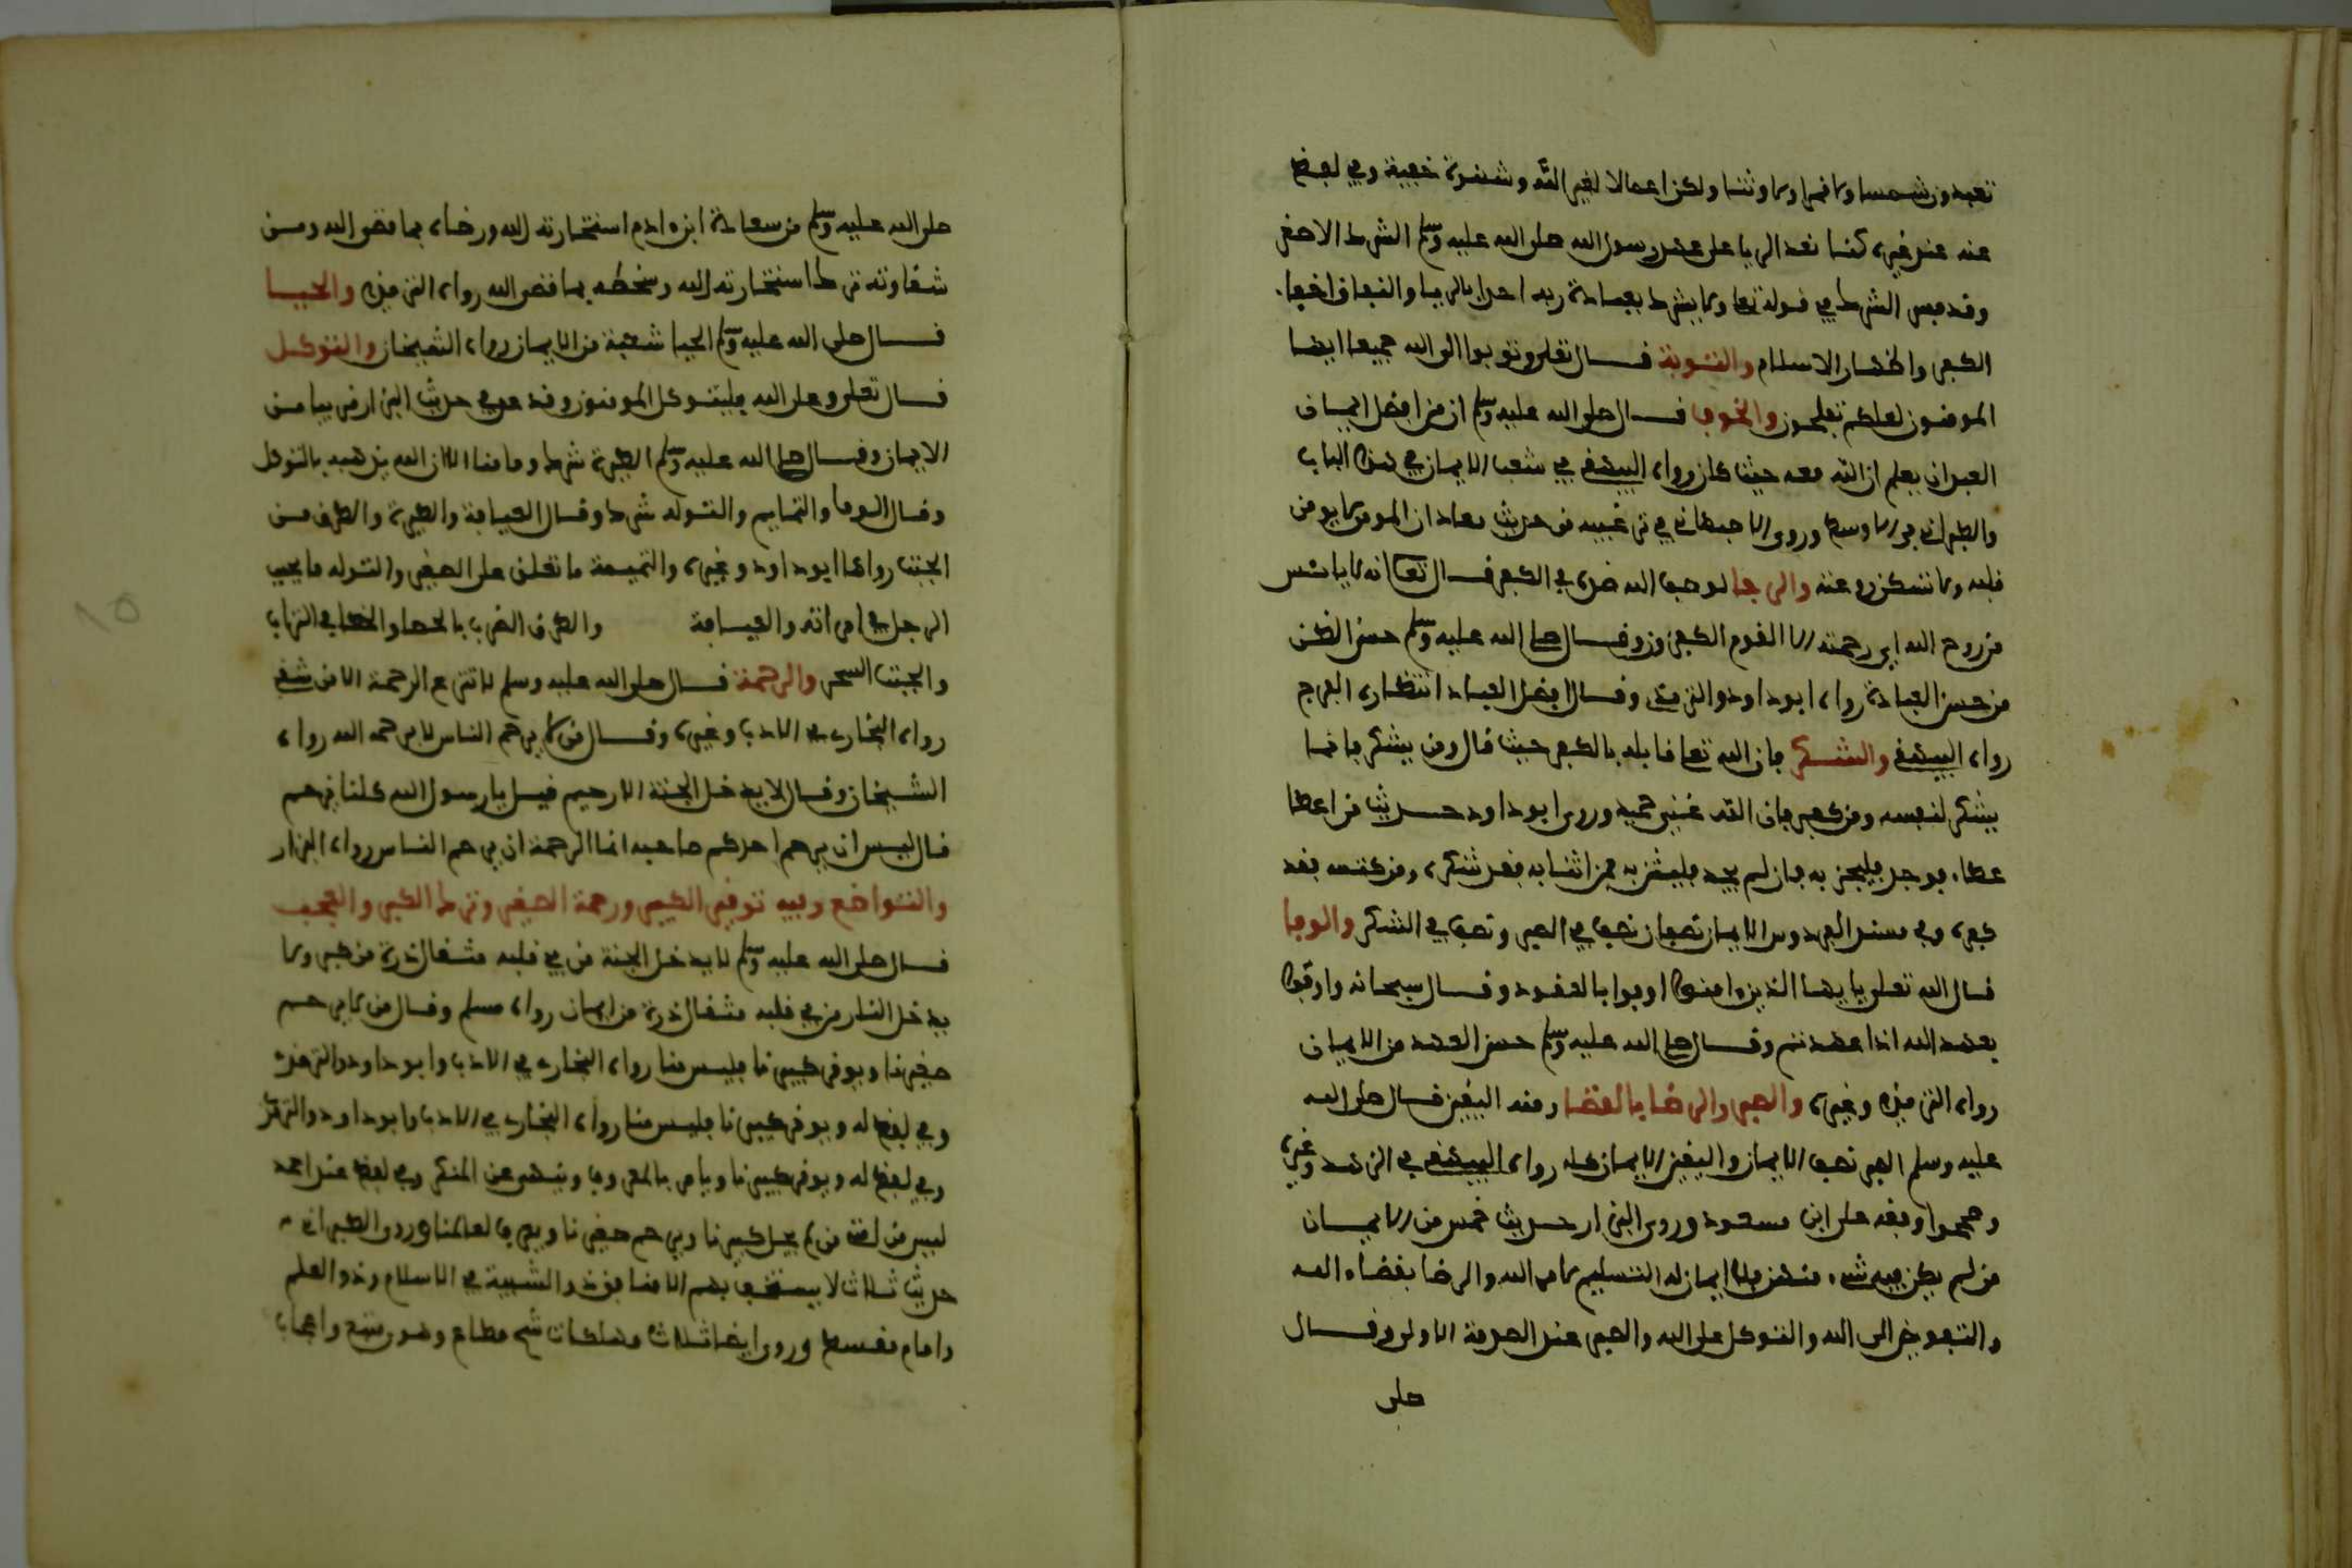 تعبدون شمسا ولا قمرا ولا وثنا ولكن اعمالا لغير الله وشهوة خفية وفي لفظ
عند غيره كنا نعد الريا على عهد رسول الله صلى الله عليه وسلم الشرك الاصغر
وقد فسر الشرك في قوله تعا ولا يشرك بعبادة ربه احدا بالريا والنفاق اخفا
الكفر واظهار الاسلام والتوبة قال تعلى وتوبوا الى الله جميعا ايها
المومنون لعلكم تفلحون والخوف قال صلى الله عليه وسلم ان من افضل ايمان
العبد ان يعلم ان الله معه حيث كان رواه البيهقي في شعب الايمان في هذا الباب
والطبراني في الاوسط وروى الاصبهاني في ترغيبه من حديث معاذ ان المومن لا يومن
قلبه ولا تسكن روعته والرجا لوصف الله ضده في الكفر قال تعا انه لا يائس
من روح الله اي رحمته الا القوم الكفرون وقال صلى الله عليه وسلم حسن الظن
من حسن العبادة رواه ابو داود والترمذي وقال افضل العباد انتظار الفرج
رواه البيهقي والشكر فان الله تعا قابله بالكفر حيث قال ومن يشكر فانما
يشكر لنفسه ومن كفر فان الله غني حميد وروى ابو داود حديث من اعطا
عطاء فوجد فليجز به فان لم يجد فليثن به فمن اثنا به فقد شكره ومن كتمه فقد
كفره وفي مسند الفردوس الايمان نصفان نصف في الصبر ونصف في الشكر والوفا
قال الله تعلى يايها الذين امنوا اوفوا بالعقود وقال سبحانه واوفوا
بعهد الله اذا عهدتم وقال صلى الله عليه وسلم حسن العهد من الايمان
رواه الترمذي وغيره والصبر والرضا بالقضا ومنه اليقين قال صلى الله
عليه وسلم الصبر نصف الايمان واليقين الايمان كله رواه البيهقي في الزهد وغيره
وصححوا وقفه على ابن مسعود وروى البزار حديث خمس من الايمان
من لم يكن فيه شيء منهن فلا ايمان له التسليم لامر الله والرضا بقضاء الله
والتفويض الى الله والتوكل على الله والصبر عند الصدمة الاولى وقال
صلى
صلى الله عليه وسلم من سعادة ابن ادم استخارته الله ورضاه بما قضى الله ومن
شقاوته ترك استخارته الله وسخطه بما قضى الله رواه الترمذي والحيا
قال صلى الله عليه وسلم الحيا شعبة من الايمان رواه الشيخان والتوكل
قال تعلى وعلى الله فليتوكل المومنون وقد عد في حديث البزار قريبا من
الايمان وقال صلى الله عليه وسلم الطيرة شرك وما منا الا ان الله يذهبه بالتوكل
وقال الرقا والتمايم والتولة شرك وقال العيافة والطيرة والطرق من
الجبت رواها ابو داود وغيره والتميمة ما تعلق على الصغير والتولة ما يحبب
الرجل في امراته والعيافة والطرق الضرب بالحصا والخط في التراب
والجبت السحر والرحمة قال صلى الله عليه وسلم لا تنزع الرحمة الا من شقي
رواه البخاري في الادب وغيره وقال من لا يرحم الناس لا يرحمه الله رواه
الشيخان وقال لا يدخل الجنة الا رحيم قيل يا رسول الله كلنا نرحم
قال ليس ان يرحم احدكم صاحبه انما الرحمة ان يرحم الناس رواه البزار
والتواضع وفيه توقير الكبير ورحمة الصغير وترك الكبر والعجب
قال صلى الله عليه وسلم لا يدخل الجنة من في قلبه مثقال ذرة من كبر ولا
يدخل النار من في قلبه مثقال ذرة من ايمان رواه مسلم وقال من لا يرحم
صغيرنا ويوقر كبيرنا فليس منا رواه البخاري في الادب وابو داود والترمذي
وفي لفظ له ويوقر كبيرنا فليس منا رواه البخاري في الادب وابو داود والترمذي
وفي لفظ له ويوقر كبيرنا ويامر بالمعروف وينهى عن المنكر وفي لفظ عند احمد
ليس من امتي من لم يجل كبيرنا ويرحم صغيرنا ويعرف لعالمنا وروى الطبراني
حديث ثلاث لا يستخف بهم الا منافق ذو الشيبة في الاسلام وذو العلم
وامام مقسط وروى ايضا ثلاث مهلكات شح مطاع وهوى متبع واعجاب
١٥